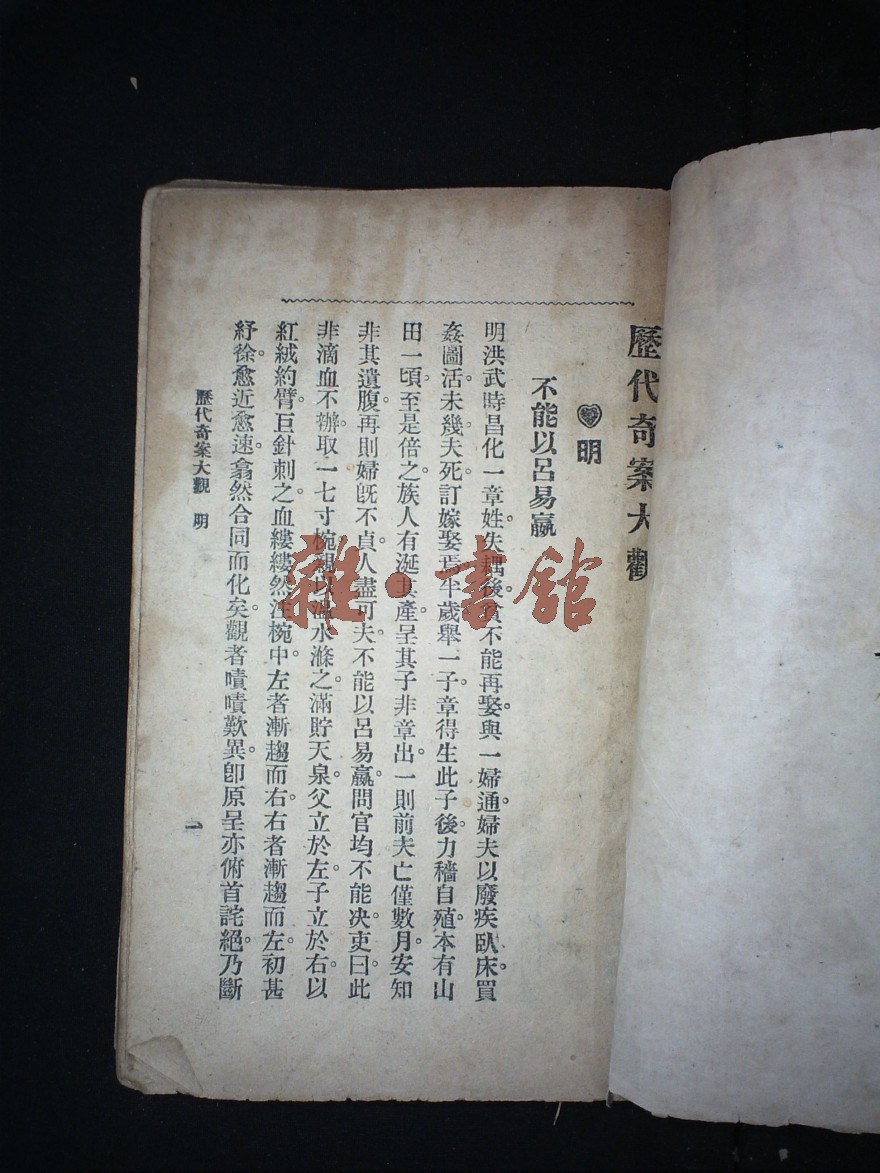 歷代奇案大觀
明
不能以呂易嬴
明洪武時昌化一章姓失耦後。貧不能再娶與一婦通。婦夫以廢疾臥床。買
姦圖活。未幾夫死。訂嫁娶焉。半歲舉一子。章得生此子後。力穡自殖。本有山
田一頃。至是倍之。族人有涎其產。呈其子非章出。一則前夫亡僅數月。安知
非其遺腹。再則婦旣不貞。人盡可夫。不能以呂易嬴。問官均不能决。吏曰。此
非滴血不辦。取一七寸椀。親以溫水滌之。滿貯天泉。父立於左。子立於右。以
紅絨約臂。巨針刺之。血縷縷然注椀中。左者漸趨而右。右者漸趨而左。初甚
紓徐。愈近愈速。翕然合同而化矣。觀者嘖嘖歎異。卽原呈亦俯首詫絕。乃斷
歷代奇案大觀 明
一
雜·書舘